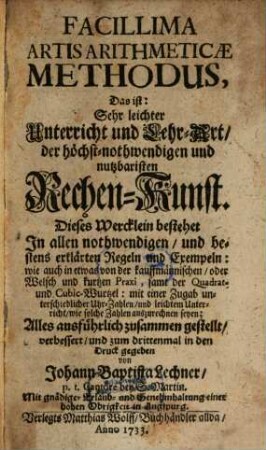 FACILLIMA
ARTIS ARITHMETICÆ
METHODUS,
Das ist:
Sehr leichter
Unterricht und Lehr-Art/
der höchst-nothwendigen und
nutzbaristen
Rechen-Kunst.
Dieses Wercklein bestehet
In allen nothwendigen/ und be-
stens erklärten Regeln und Exempeln:
wie auch in etwas von der kauffmännischen/ oder
Welsch und kurtzen Praxi, samt der Quadrat-
und Cubic-Wurtzel: mit einer Zugab un-
terschidlicher Uhr-Zahlen/ und leichtem Unter-
richt/ wie solche Zahlen auszurechnen seyen:
Alles ausführlich zusammen gestellt/
verbessert/ und zum drittenmal in den
Druck gegeben
von
Johann Baptista Lechner/
p. t. bey S. Martin.
Mit gnädiger Erlaub- und Genehmhaltung einer
hohen Obrigkeit in Augspurg.
Verlegts Matthias Wolff/ Buchhändler allda/
Anno 1733.